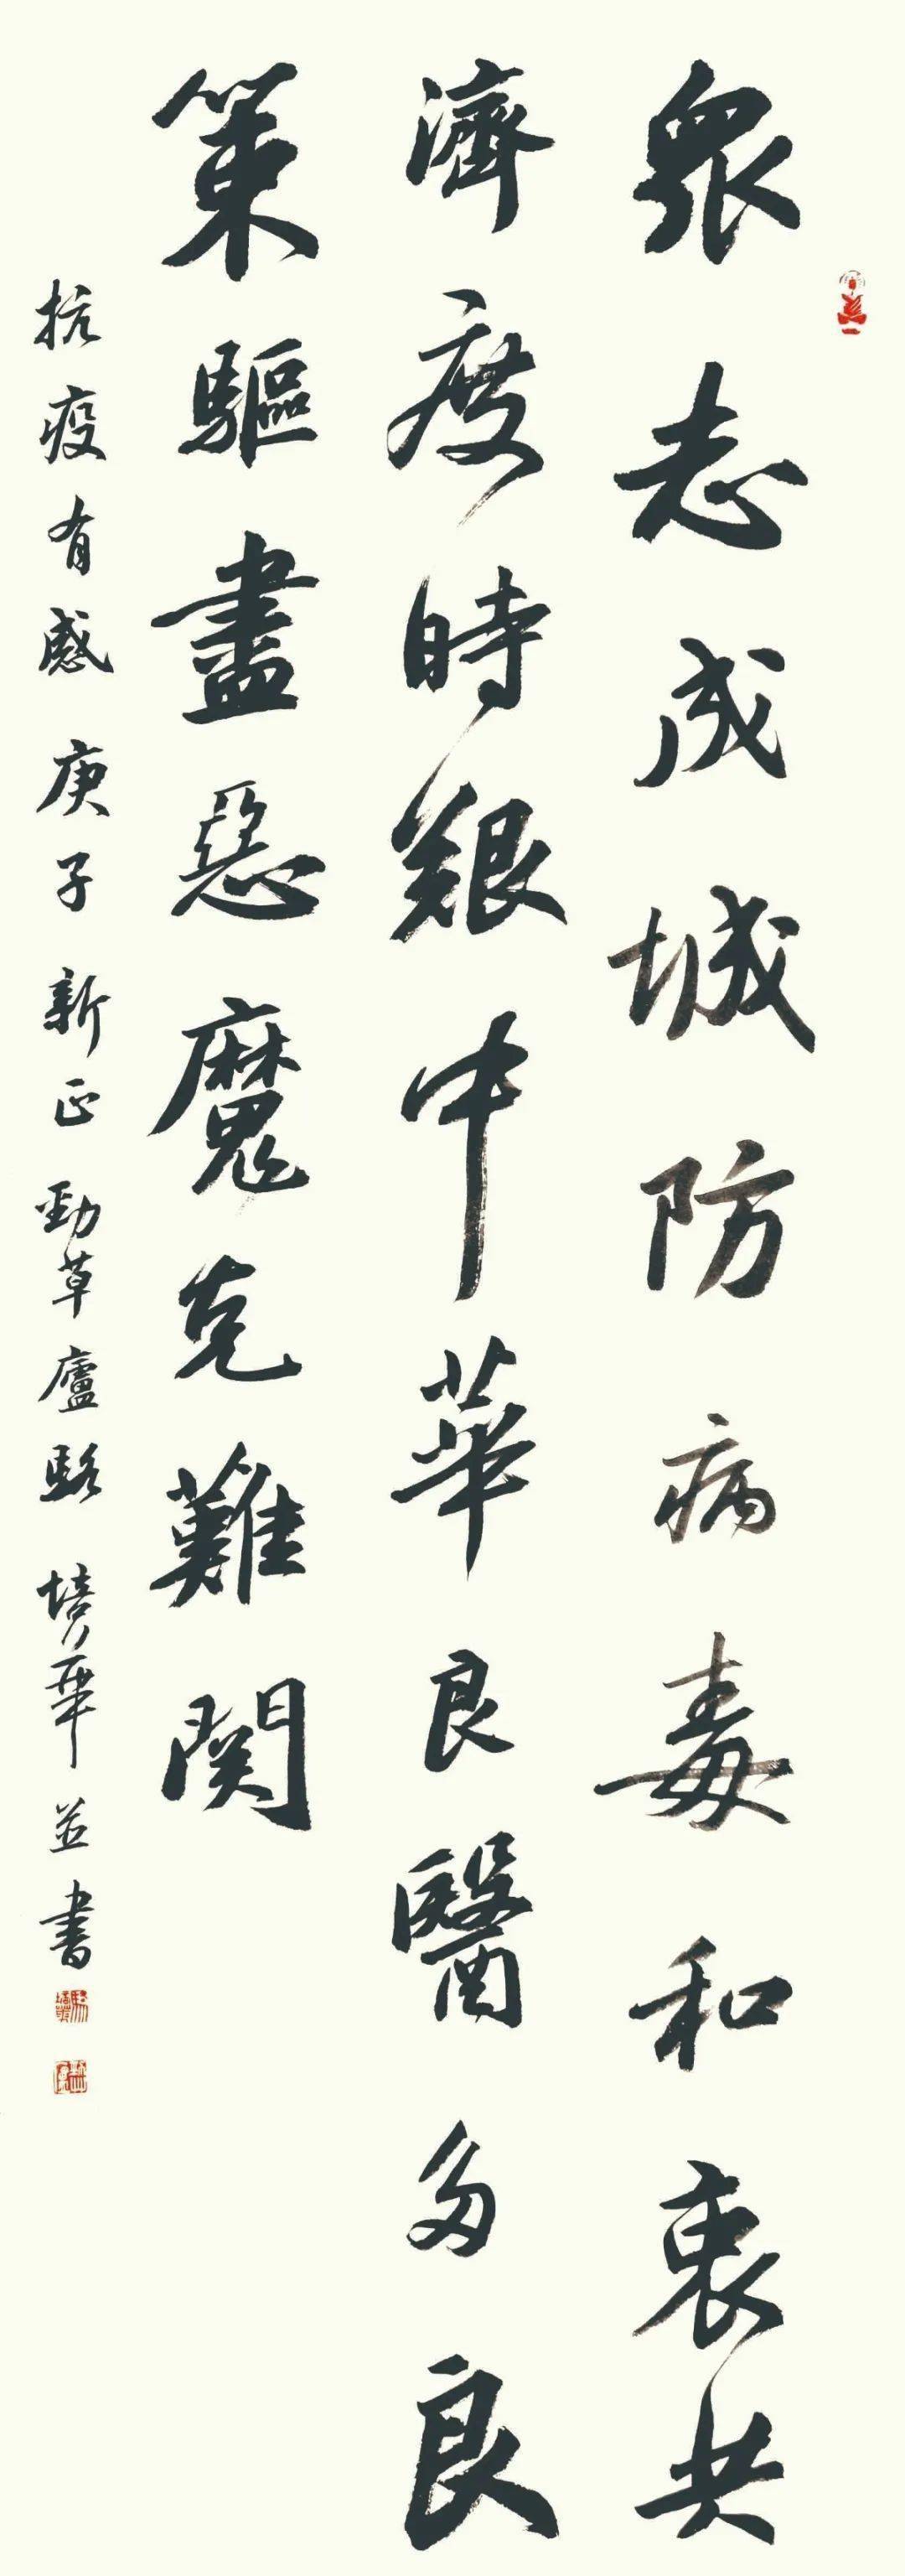 眾志成城防病毒和衷共
濟度時艱中華良醫多良
策驅盡惡魔克難関
抗疫有感 庚子新正 勁草廬駱培華並書